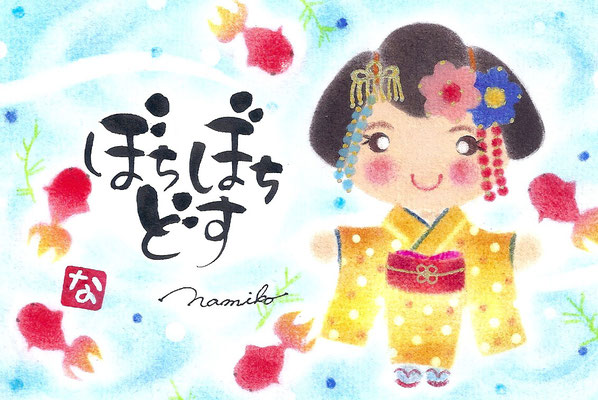 ぼちぼち
どす
namiko
な